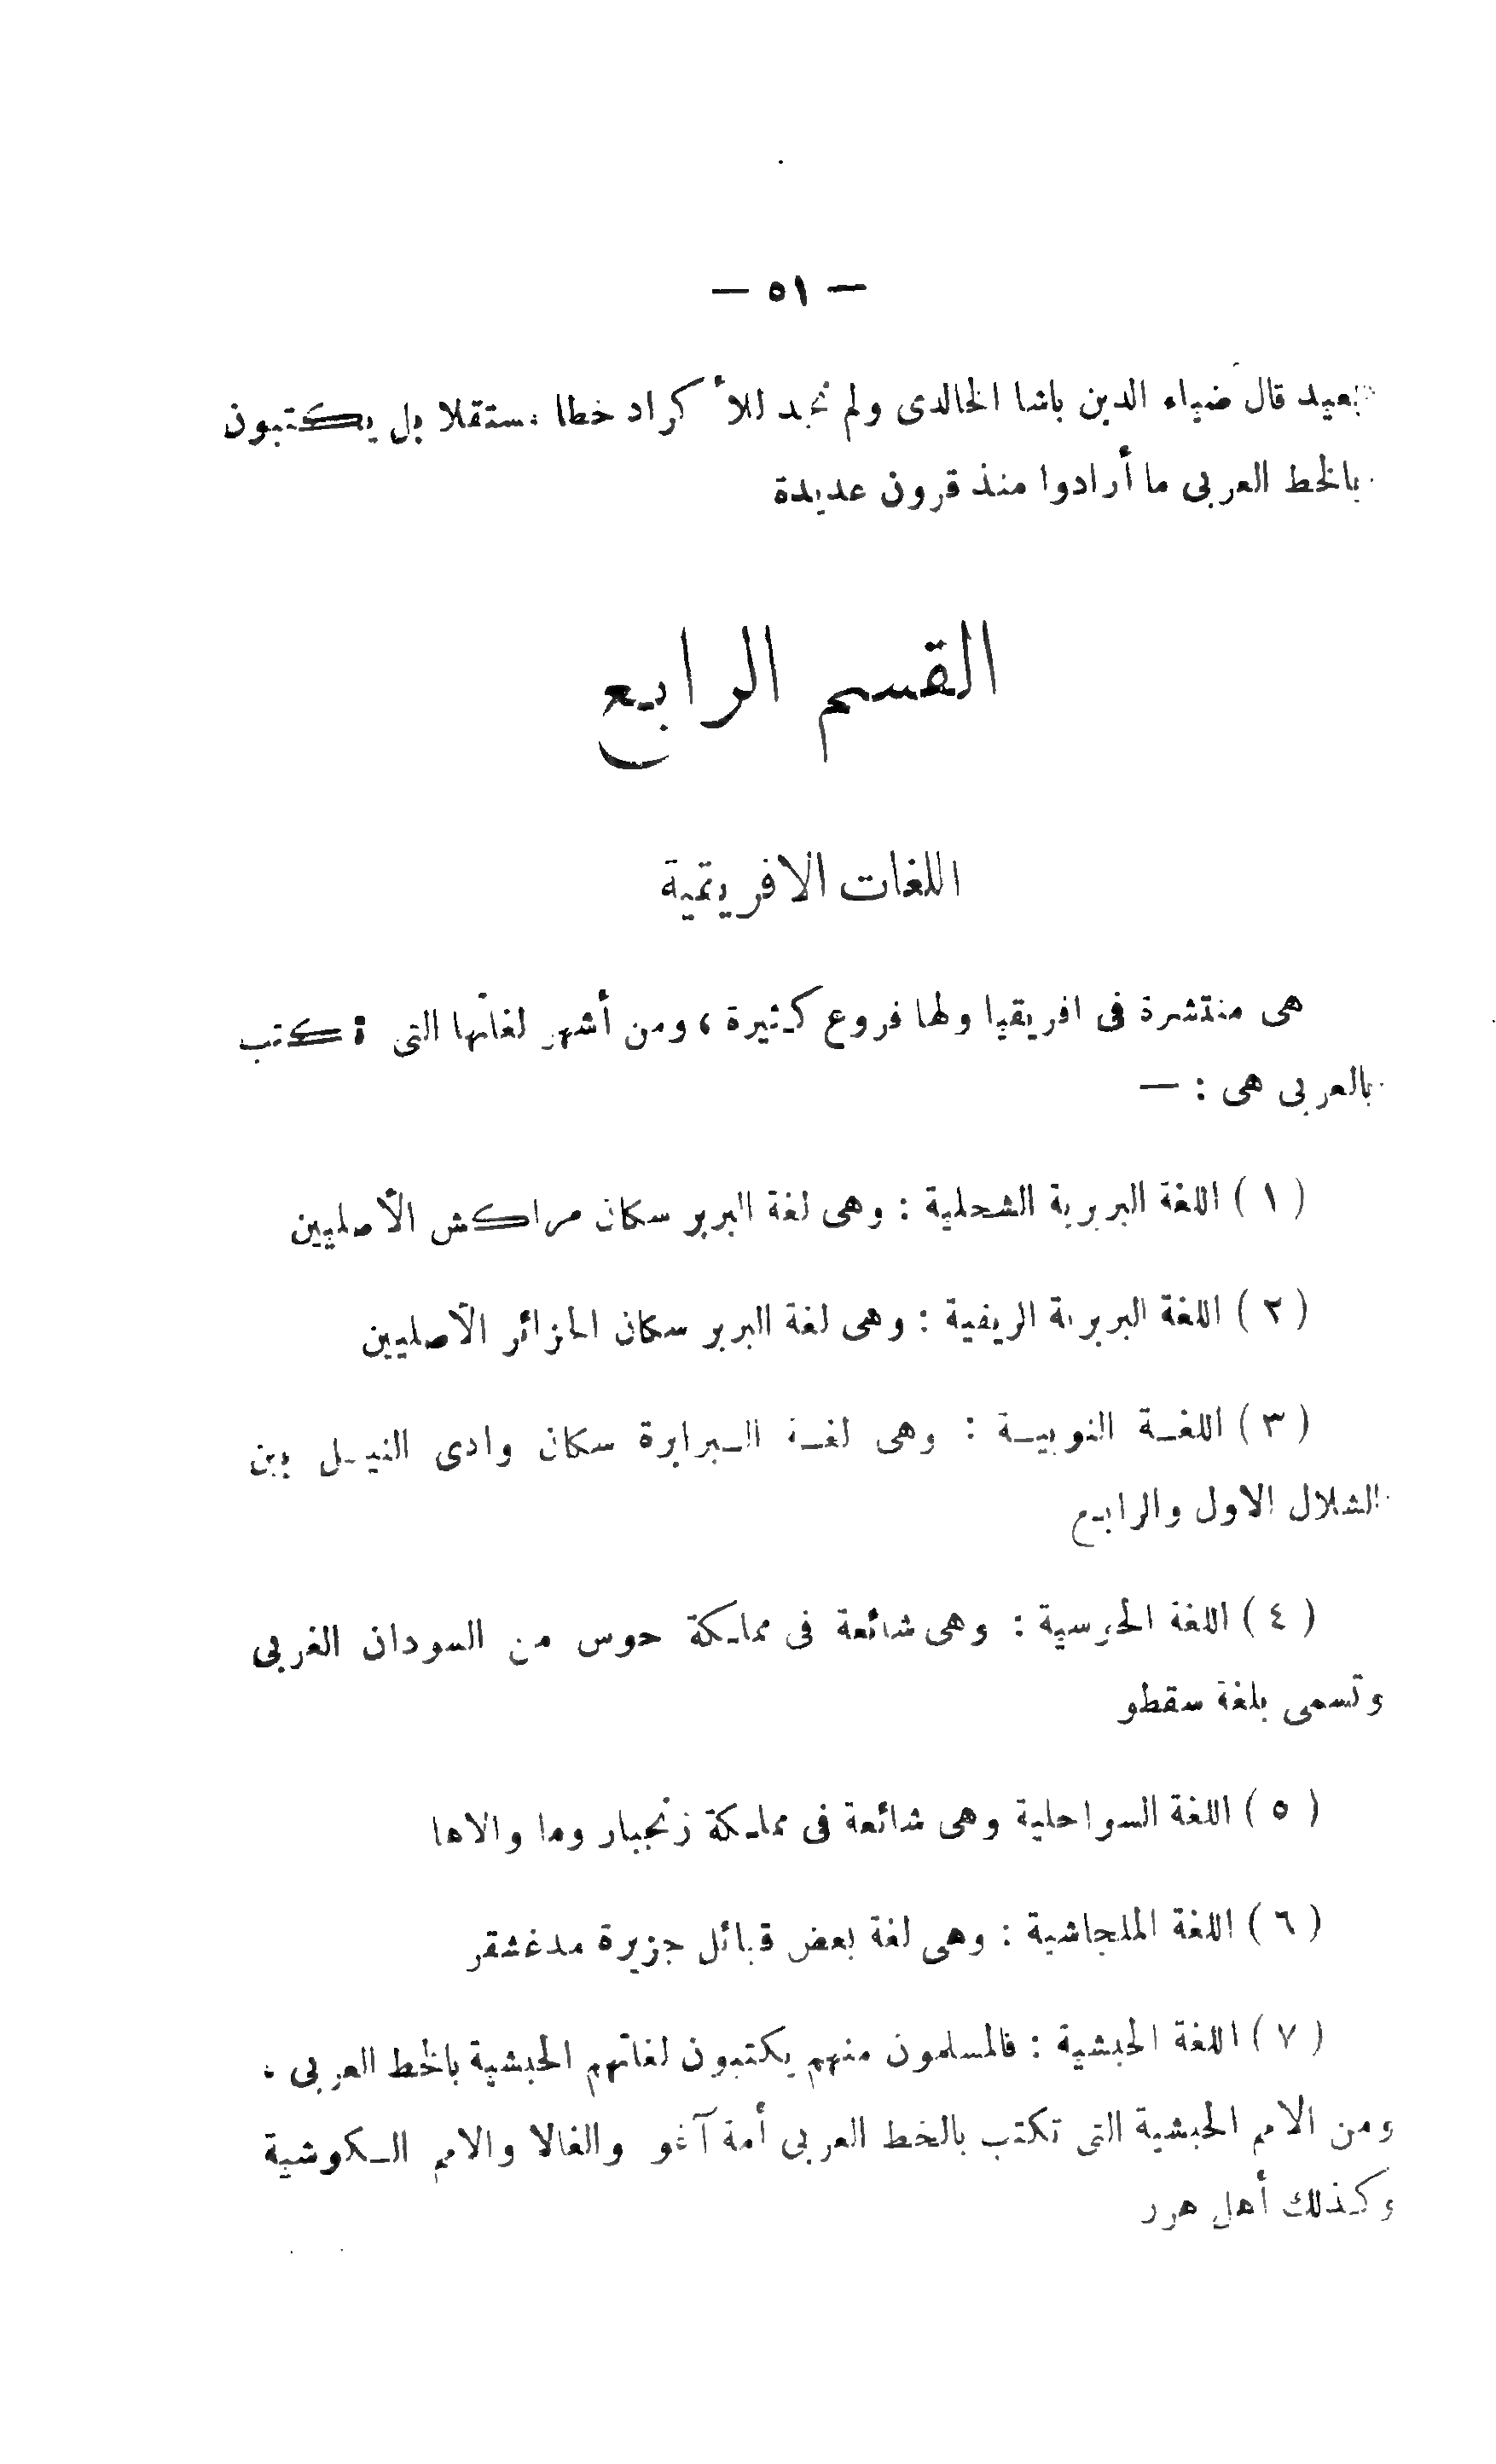 — ٥١ —
بعيد قال ضياء الدين باشا الخالدى ولم نجد للأكراد خطا مستقلا بل يكتبون
بالخط العربى ما أرادوا منذ قرون عديدة
القسم الرابع
اللغات الافريقية
هى منتشرة فى افريقيا ولها فروع كثيرة ، ومن أشهر لغاتها التى تكتب
بالعربى هى : —
( ١ ) اللغة البربرية الشحلية : وهى لغة البربر سكان مراكش الأصليين
( ٢ ) اللغة البربرية الريفية : وهى لغة البربر سكان الجزائر الأصليين
( ٣ ) اللغة النوبية : وهى لغة البرابرة سكان وادى النيل بين
الشلال الاول والرابع
( ٤ ) اللغة الحوسية : وهى شائعة فى مملكة حوس من السودان الغربى
وتسمى بلغة سقطو
( ٥ ) اللغة السواحلية وهى شائعة فى مملكة زنجبار وما والاها
( ٦ ) اللغة الملجاشية : وهى لغة بعض قبائل جزيرة مدغشقر
( ٧ ) اللغة الحبشية : فالمسلمون منهم يكتبون لغاتهم الحبشية بالخط العربى .
ومن الامم الحبشية التى تكتب بالخط العربى أمة آغو والغالا والامم الكوشية
وكذلك أهل هرر